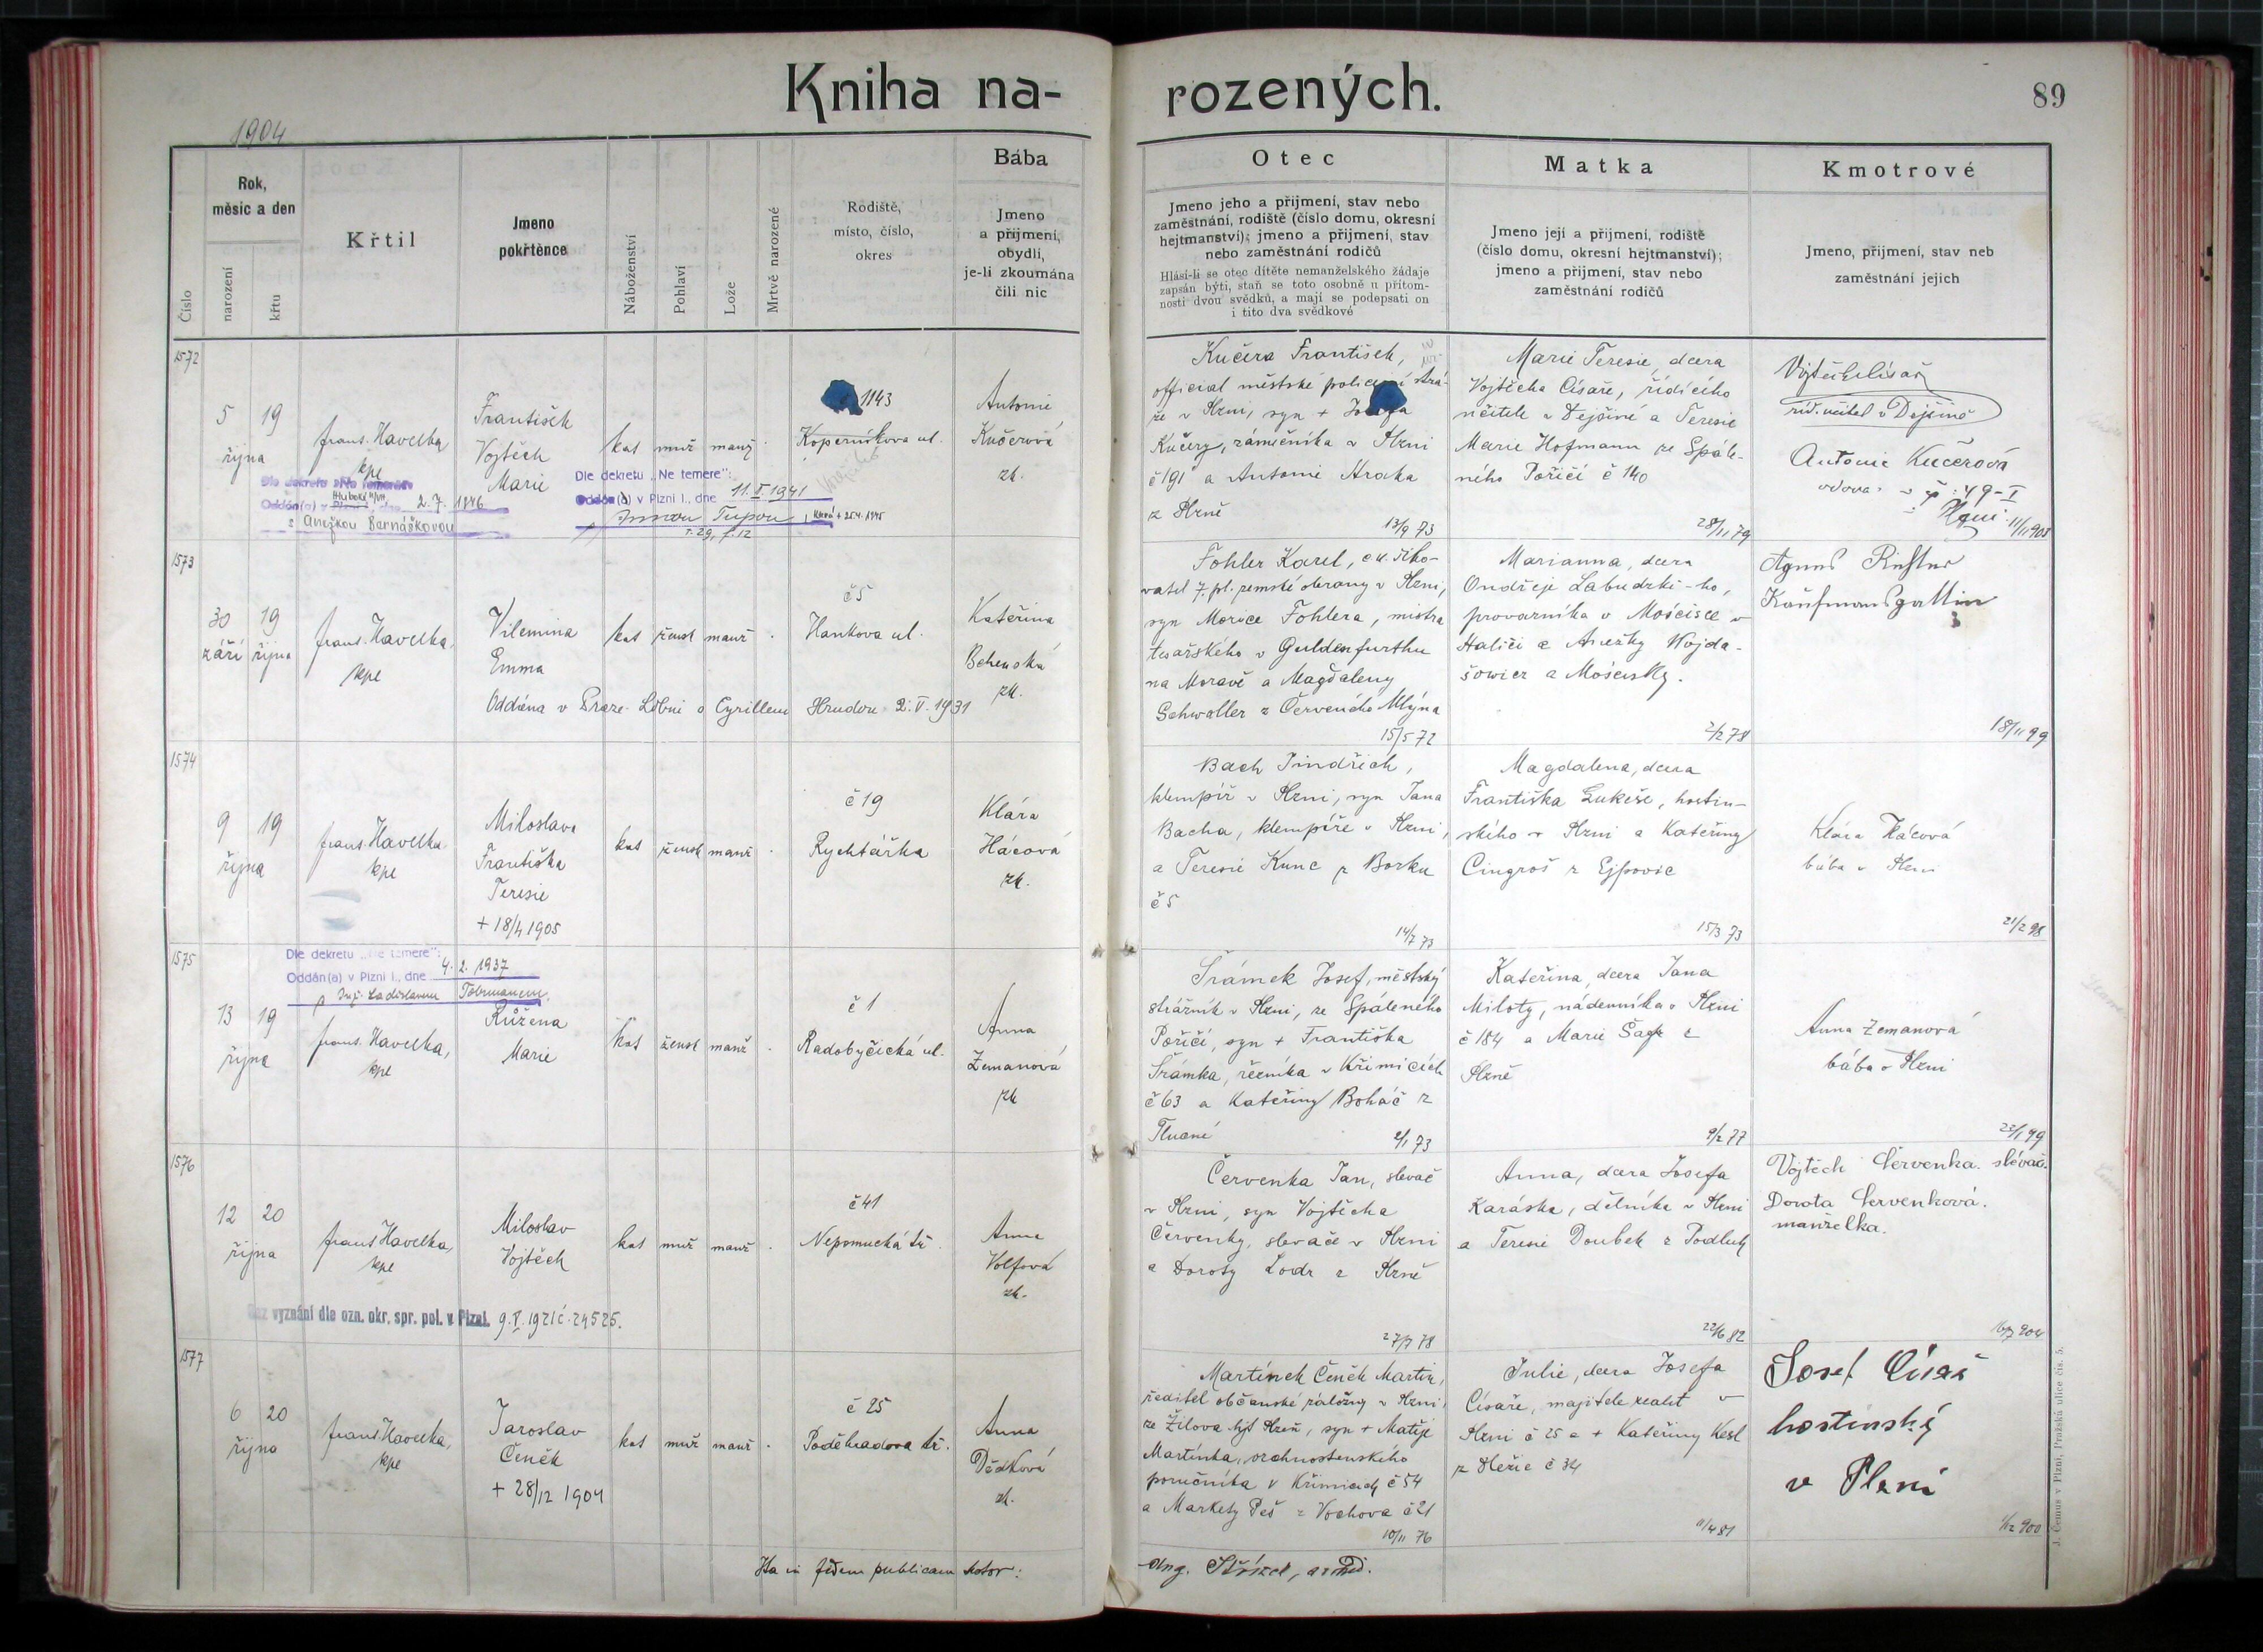 Kniha na-
rozených.
89
1904
Číslo
Rok,
měsíc a den
narození
křtu
Křtil
Jmeno
pokřtěnce
Náboženství
Pohlaví
Lože
Mrtvě narozené
Rodiště,
místo, číslo,
okres
Bába
Jmeno
a příjmení,
obydlí,
je-li zkoumána
čili nic
Otec
Jmeno jeho a přijmení, stav nebo
zaměstnání, rodiště (číslo domu, okresní
hejtmanství); jmeno a přijmení, stav
nebo zaměstnání rodičů
Hlásí-li se otec dítěte nemanželského žádaje
zapsán býti, staň se toto osobně u přítom-
nosti dvou svědků, a mají se podepsati on
i tito dva svědkové
Matka
Jmeno její a přijmení, rodiště
(číslo domu, okresní hejtmanství);
jmeno a přijmení, stav nebo
zaměstnání rodičů
Kmotrové
Jmeno, přijmení, stav neb
zaměstnání jejich
1572
5 19
října
frant. Havelka,
kpe
František
Vojtěch
Marie
kat muž manž
1143
Koperníkova ul.
Antonie
Kučerová
zk.
Dle dekretu „Ne temere“:
Oddán(a) v
Hluboké n/Vlt.
dne 2. 7. 1946
s Anežkou Bernáškovou
Dle dekretu „Ne temere“:
Oddán(a) v Plzni I., dne 11. X. 1941
s Annou Tupou, která + 25.4.1945
T. 29, f. 12
Kučera František,
official městské policejní strá-
že v Plzni, syn + Josefa
Kučery, zámečníka v Plzni
č 191 a Antonie Hraka
z Plzně
13/9 73
Marie Teresie, dcera
Vojtěcha Císaře, řídícího
učitele v Dejšině a Teresie
Marie Hofmann ze Spále-
ného Poříčí č 140
28/11 79
Vojtěch Císař
říd. učitel v Dejšině
Antonie Kučerová
vdova v č: 49-I
Plzni 11/11 903
1573
30 19
září října
frant. Havelka,
kpe
Vilemina
Emma
kat žensk manž
č 5
Hankova ul.
Kateřina
Behenská
zk.
Oddána v Praze-Libni s Cyrillem Hrudou 2. V. 1931
Fohler Karel, c. k. šiko-
vatel 7. pl. zemské obrany v Plzni,
syn Morice Fohlera, mistra
tesařského v Guldenfurthu
na Moravě a Magdaleny
Schwaller z Červeného Mlýna
15/5 72
Marianna, dcera
Ondřeje Labudzki-ho,
provazníka v Mościsce v
Haliči a Anežky Wojda-
šowicz z Mościsky.
2/2 78
Agnes Richter
Kaufmannsgattin
18/11 99
1574
9 19
října
frant. Havelka
kpe
Miloslava
Františka
Teresie
+ 18/4 1905
kat žensk manž
č 19
Rychtářka
Klára
Hácová
zk.
Bach Jindřich,
klempíř v Plzni, syn Jana
Bacha, klempíře v Plzni,
a Teresie Kunc z Borku
č 5
14/7 73
Magdalena, dcera
Františka Lukeše, hostin-
ského v Plzni a Kateřiny
Cingroš z Ejpovic
15/3 73
Klára Hácová
bába v Plzni
21/2 98
1575
Dle dekretu „Ne temere“:
Oddán(a) v Plzni I., dne 4. 2. 1937
s Ing. Ladislavem
13 19
října
frant. Havelka,
kpe
Růžena
Marie
kat žensk manž
č 1
Radobyčická ul.
Anna
Zemanová
zk
Šrámek Josef, městský
strážník v Plzni, ze Spáleného
Poříčí, syn + Františka
Šrámka, řezníka v Křimicích
č 63 a Kateřiny Boháč z
Tlučné
2/1 73
Kateřina, dcera Jana
Miloty, nádenníka v Plzni
č 184 a Marie z
Plzně
9/2 77
Anna Zemanová
bába v Plzni
23/1 99
1576
12 20
října
frant. Havelka,
kpe
Miloslav
Vojtěch
kat muž manž
č 41
Nepomucká tř.
Anna
Volfová
zk.
Bez vyznání dle ozn. okr. spr. pol. v Plzni. 9. V. 1921 č. 24525.
Červenka Jan, slevač
v Plzni, syn Vojtěcha
Červenky, slevače v Plzni
a Doroty Lodr z Plzně
27/7 78
Anna, dcera Josefa
Karáska, dělníka v Plzni
a Teresie Doubek z Podluh
22/6 82
Vojtěch Červenka. slévač.
Dorota Červenková.
manželka.
904
1577
6 20
října
frant. Havelka,
kpe
Jaroslav
Čeněk
+ 28/12 1904
kat muž manž
č 25
Poděbradova tř.
Anna
Dědková
zk.
Martínek Čeněk Martin,
ředitel občanské záložny v Plzni,
ze Žilova hejt Plzeň, syn + Matěje
Martínka, vrchnostenského
poručníka v Křimicích č 54
a Markety Peš z Vochova č 21
10/11 76
Julie, dcera Josefa
Císaře, majitele realit v
Plzni č 25 a + Kateřiny Kesl
z č 34
11/4 81
Josef Císař
hostinský
v Plzni
1/12 900
Ita in fidem publicam testor:
Aug. Střízek, arcid.
J. Černus v Plzni, Pražská ulice čís. 5.